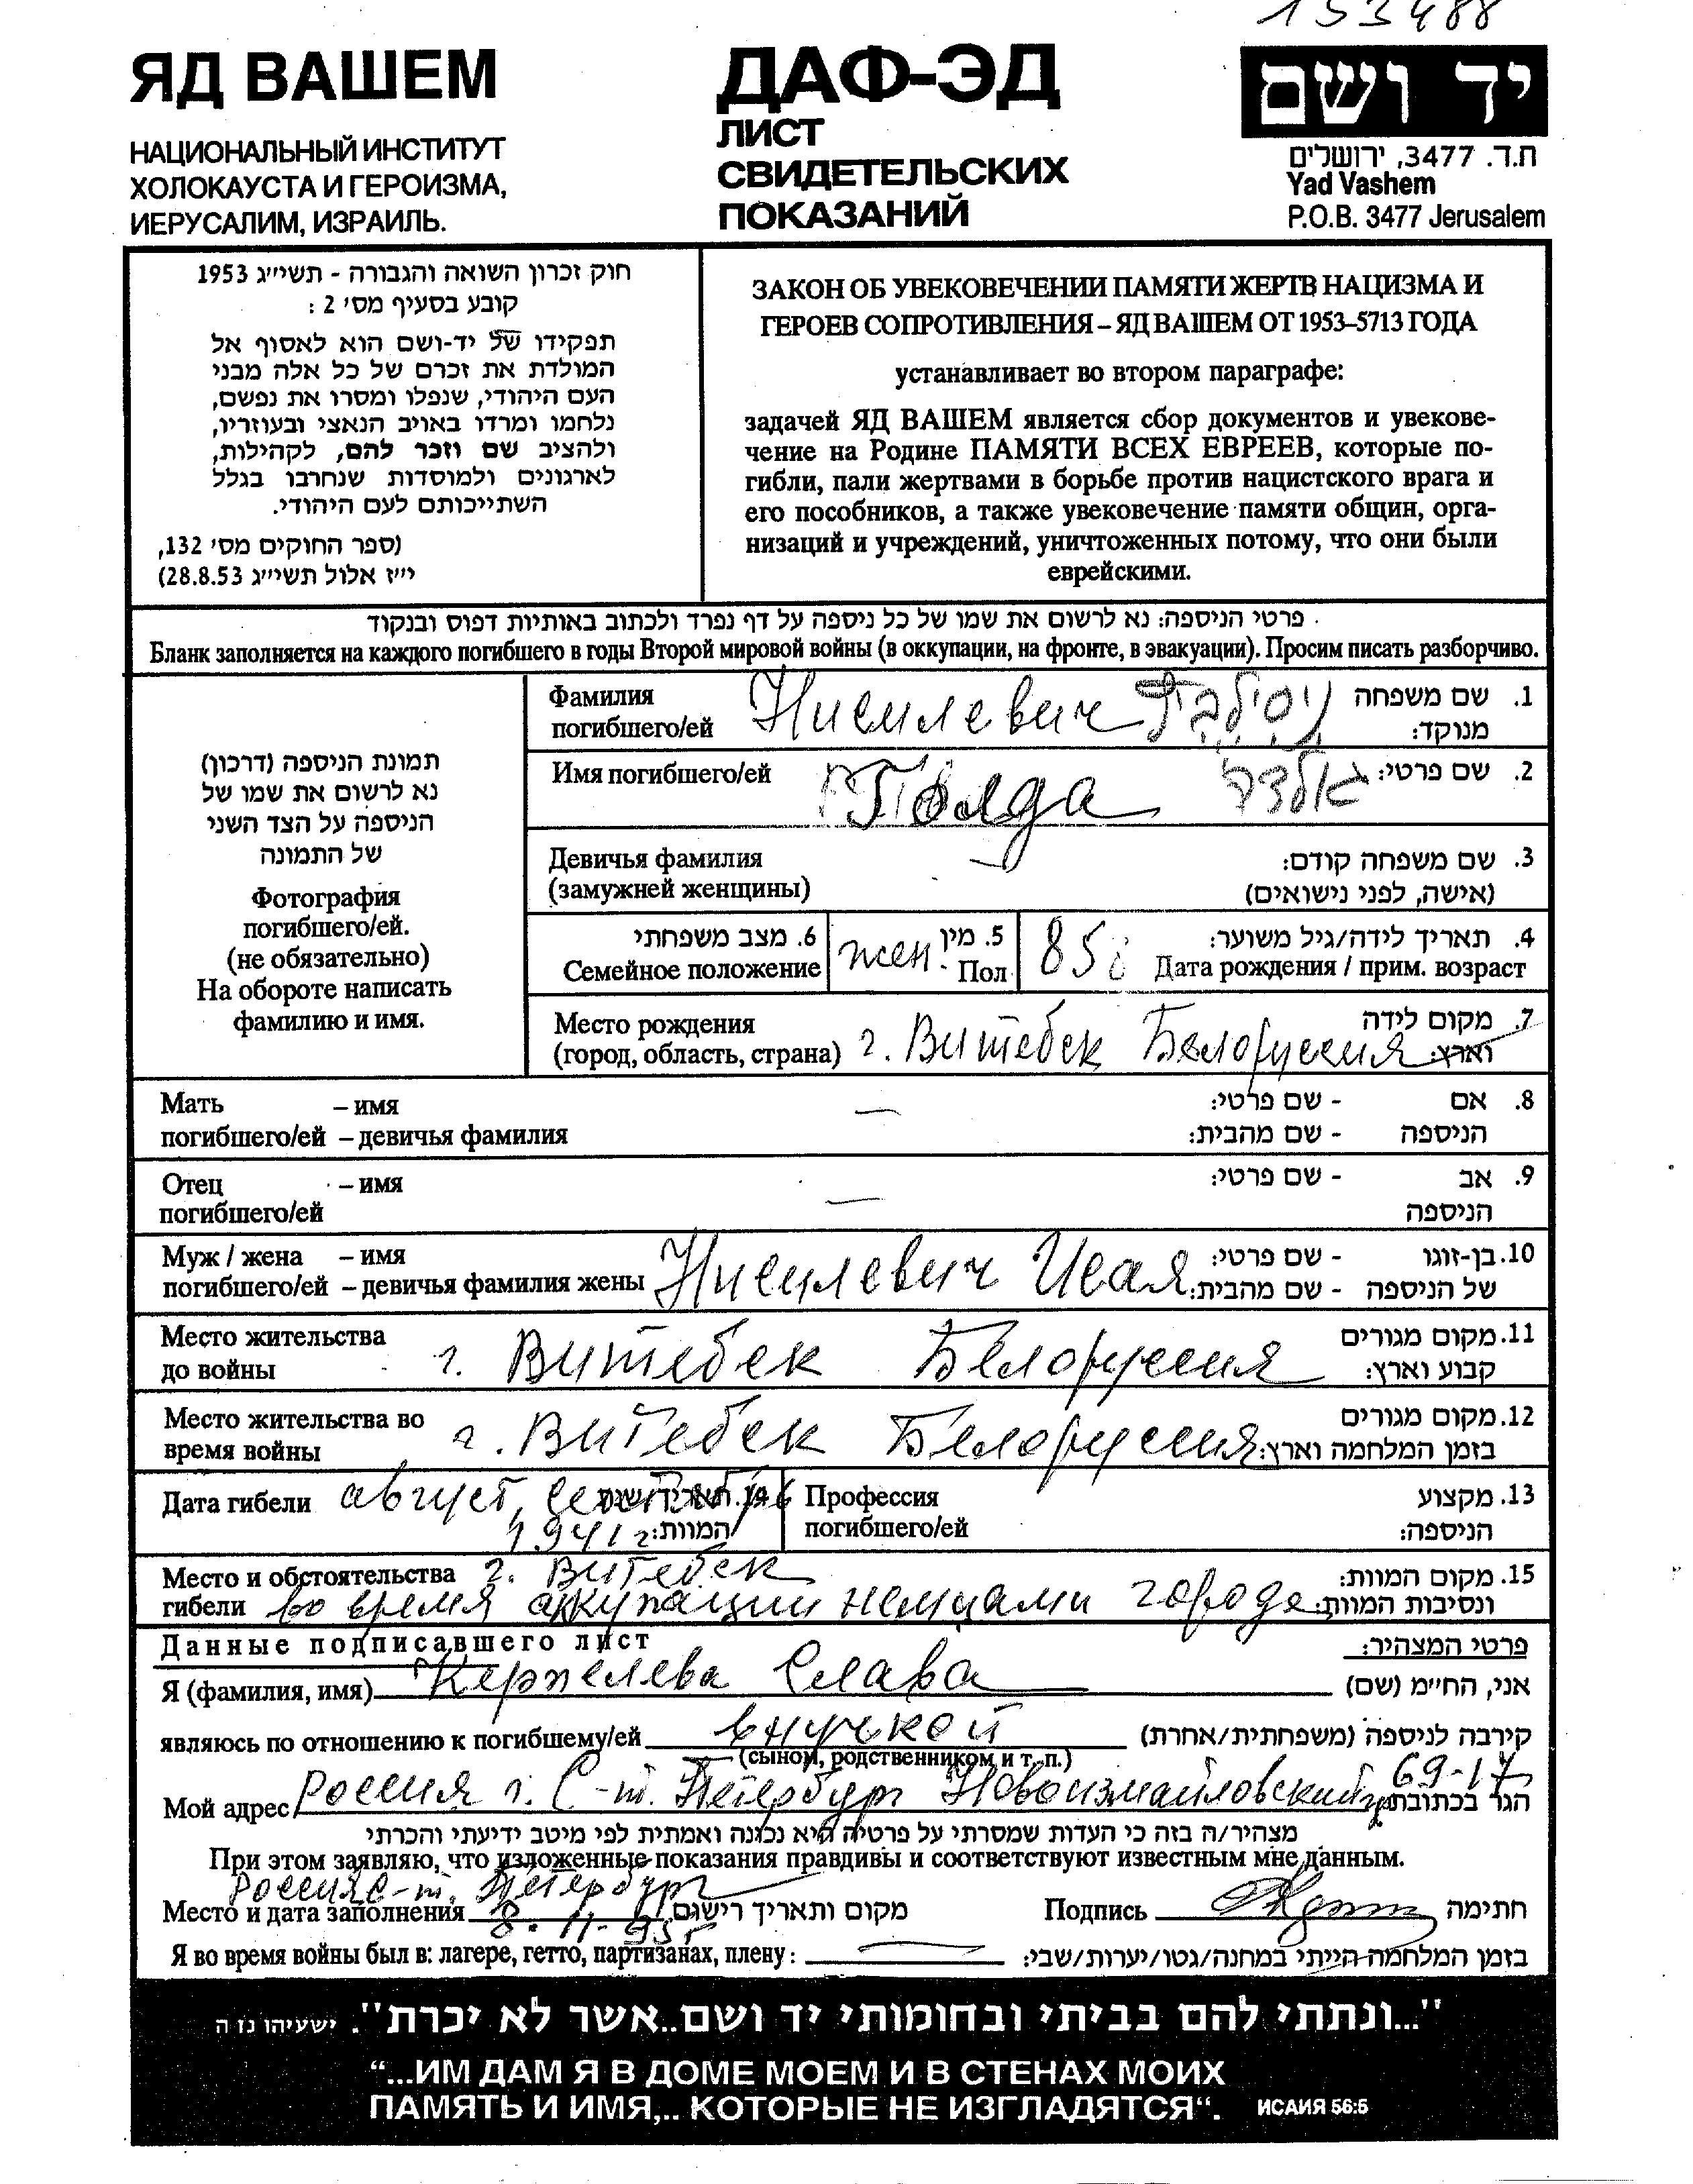 153488
ЯД ВАШЕМ
НАЦИОНАЛЬНЫЙ ИНСТИТУТ
ХОЛОКАУСТА И ГЕРОИЗМА,
ИЕРУСАЛИМ, ИЗРАИЛЬ.
ДАФ-ЭД
ЛИСТ
СВИДЕТЕЛЬСКИХ
ПОКАЗАНИЙ
יד ושם
ת.ד. 3477, ירושלים
Yad Vashem
P.O.B. 3477 Jerusalem
חוק זכרון השואה והגבורה - תשי״ג 1953
קובע בסעיף מס׳ 2 :
תפקידו של יד-ושם הוא לאסוף אל
המולדת את זכרם של כל אלה מבני
העם היהודי, שנפלו ומסרו את נפשם,
נלחמו ומרדו באויב הנאצי ובעוזריו,
ולהציב שם וזכר להם, לקהילות,
לארגונים ולמוסדות שנחרבו בגלל
השתייכותם לעם היהודי.
(ספר החוקים מס׳ 132,
י״ז אלול תשי״ג 28.8.53)
ЗАКОН ОБ УВЕКОВЕЧЕНИИ ПАМЯТИ ЖЕРТВ НАЦИЗМА И
ГЕРОЕВ СОПРОТИВЛЕНИЯ – ЯД ВАШЕМ ОТ 1953–5713 ГОДА
устанавливает во втором параграфе:
задачей ЯД ВАШЕМ является сбор документов и увекове-
чение на Родине ПАМЯТИ ВСЕХ ЕВРЕЕВ, которые по-
гибли, пали жертвами в борьбе против нацистского врага и
его пособников, а также увековечение памяти общин, орга-
низаций и учреждений, уничтоженных потому, что они были
еврейскими.
פרטי הניספה: נא לרשום את שמו של כל ניספה על דף נפרד ולכתוב באותיות דפוס ובנקוד
Бланк заполняется на каждого погибшего в годы Второй мировой войны (в оккупации, на фронте, в эвакуации). Просим писать разборчиво.
תמונת הניספה (דרכון)
נא לרשום את שמו של
הניספה על הצד השני
של התמונה
Фотография
погибшего/ей.
(не обязательно)
На обороте написать
фамилию и имя.
Фамилия 1. שם משפחה
погибшего/ей Нисилевич נִיסִילֶבִיץ מנוקד:
Имя погибшего/ей Голда גולדה 2. שם פרטי:
Девичья фамилия — 3. שם משפחה קודם:
(замужней женщины) (אישה, לפני נישואים)
6. מצב משפחתי 5. מין 4. תאריך לידה/גיל משוער:
Семейное положение жен. Пол 85 Дата рождения / прим. возраст
Место рождения 7. מקום לידה
(город, область, страна) г. Витебск Белоруссия וארץ:
Мать – имя — - שם פרטי: 8. אם
погибшего/ей – девичья фамилия - שם מהבית: הניספה
Отец – имя - שם פרטי: 9. אב
погибшего/ей — הניספה
Муж / жена – имя - שם פרטי: 10. בן-זוגו
погибшего/ей – девичья фамилия жены Нисилевич Исая - שם מהבית: של הניספה
Место жительства 11. מקום מגורים
до войны г. Витебск Белоруссия קבוע וארץ:
Место жительства во 12. מקום מגורים
время войны г. Витебск Белоруссия בזמן המלחמה וארץ:
Дата гибели август, сентябрь 14. תאריך/שנת Профессия 13. מקצוע
1941 г המוות: погибшего/ей הניספה:
Место и обстоятельства г. Витебск 15. מקום המוות:
гибели во время аккупации немцами города ונסיבות המוות:
Данные подписавшего лист פרטי המצהיר:
Я (фамилия, имя) Керпелева Слава אני, הח״מ (שם)
являюсь по отношению к погибшему/ей внучкой קירבה לניספה (משפחתית/אחרת)
(сыном, родственником и т. п.)
69-17
Мой адрес Россия г. С-т. Петербург Новоизмайловский הגר בכתובת
מצהיר/ה בזה כי העדות שמסרתי על פרטיה היא נכונה ואמתית לפי מיטב ידיעתי והכרתי
При этом заявляю, что изложенные показания правдивы и соответствуют известным мне данным.
Россия С-т. Петербург
Место и дата заполнения 8-11-95г מקום ותאריך רישום Подпись חתימה
Я во время войны был в: лагере, гетто, партизанах, плену: — בזמן המלחמה הייתי במחנה/גטו/יערות/שבי:
"...ונתתי להם בביתי ובחומותי יד ושם..אשר לא יכרת". ישעיהו נז ה
“...ИМ ДАМ Я В ДОМЕ МОЕМ И В СТЕНАХ МОИХ
ПАМЯТЬ И ИМЯ,.. КОТОРЫЕ НЕ ИЗГЛАДЯТСЯ“. ИСАИЯ 56:5